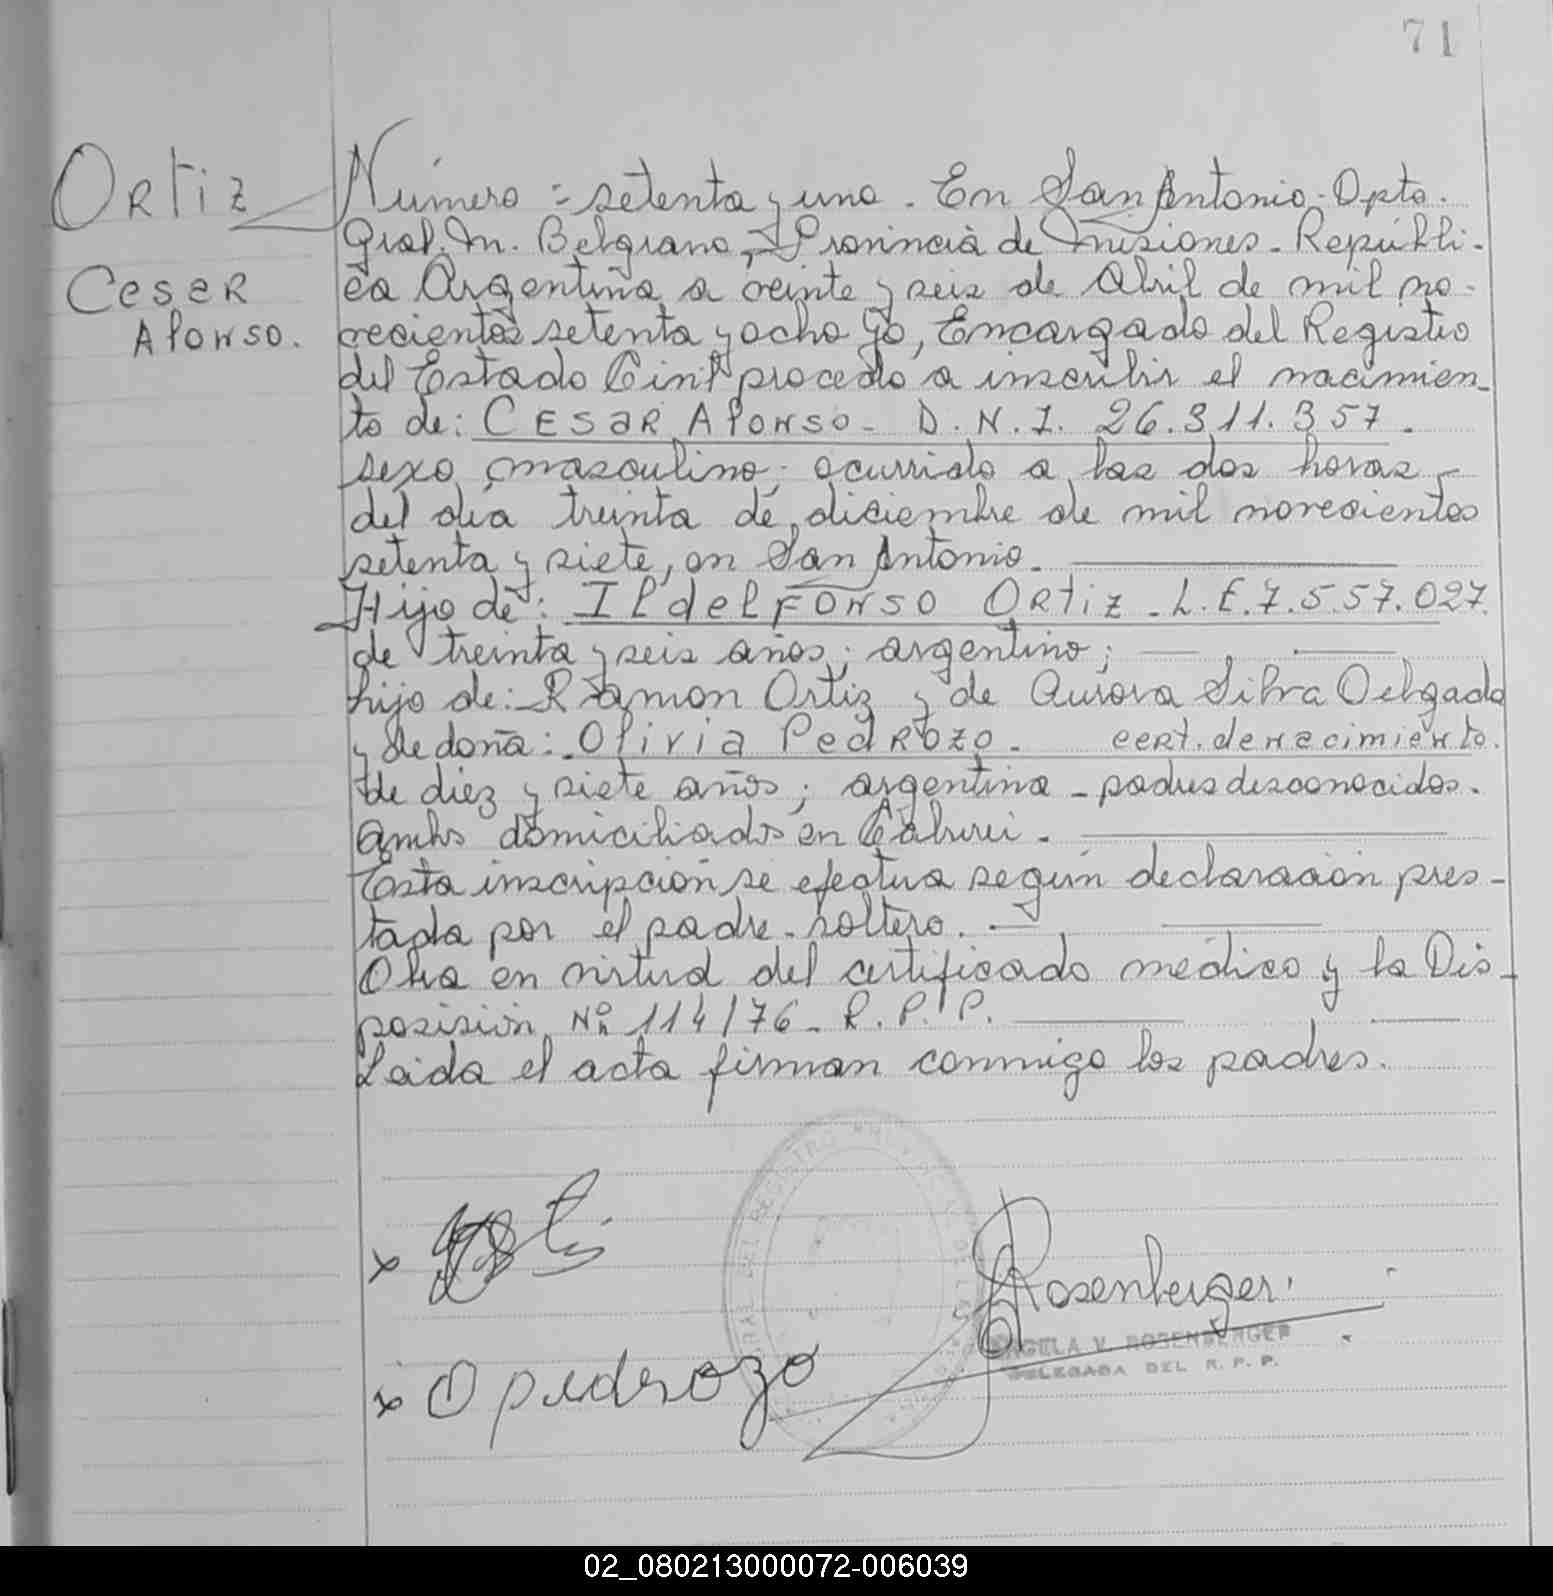 71
Ortiz
Ceser
Alonso.
Número = setenta y uno. En San Antonio - Dpto.
Gral. M. Belgrano, Provincia de Misiones - Repúbli-
ca Argentina a veinte y seis de Abril de mil no-
vecientos setenta y ocho Yo, Encargado del Registro
del Estado Civil procedo a inscribir el nacimien-
to de: Cesar Alonso - D.N.I. 26.311.357.
sexo masculino; ocurrido a las dos horas
del día treinta de diciembre de mil novecientos
setenta y siete, en San Antonio.
Hijo de: Ildelfonso Ortiz - L.E. 7.557.027.
de treinta y seis años; argentino;
hijo de: Ramon Ortiz y de Aurora Silva Delgado
y de doña: Olivia Pedrozo - cert. de nacimiento.
de diez y siete años; argentina - padres desconocidos.
ambos domiciliados en Caburei.
Esta inscripción se efectua según declaración pres-
tada por el padre - soltero.
Otra en virtud del certificado médico y la Dis-
posición Nº 114/76 - R.P.P.
Leida el acta firman conmigo los padres.
x
Rosenberger.
ANGELA V. ROSENBERGER
DELEGADA DEL R. P. P.
x O pedrozo
02_080213000072-006039